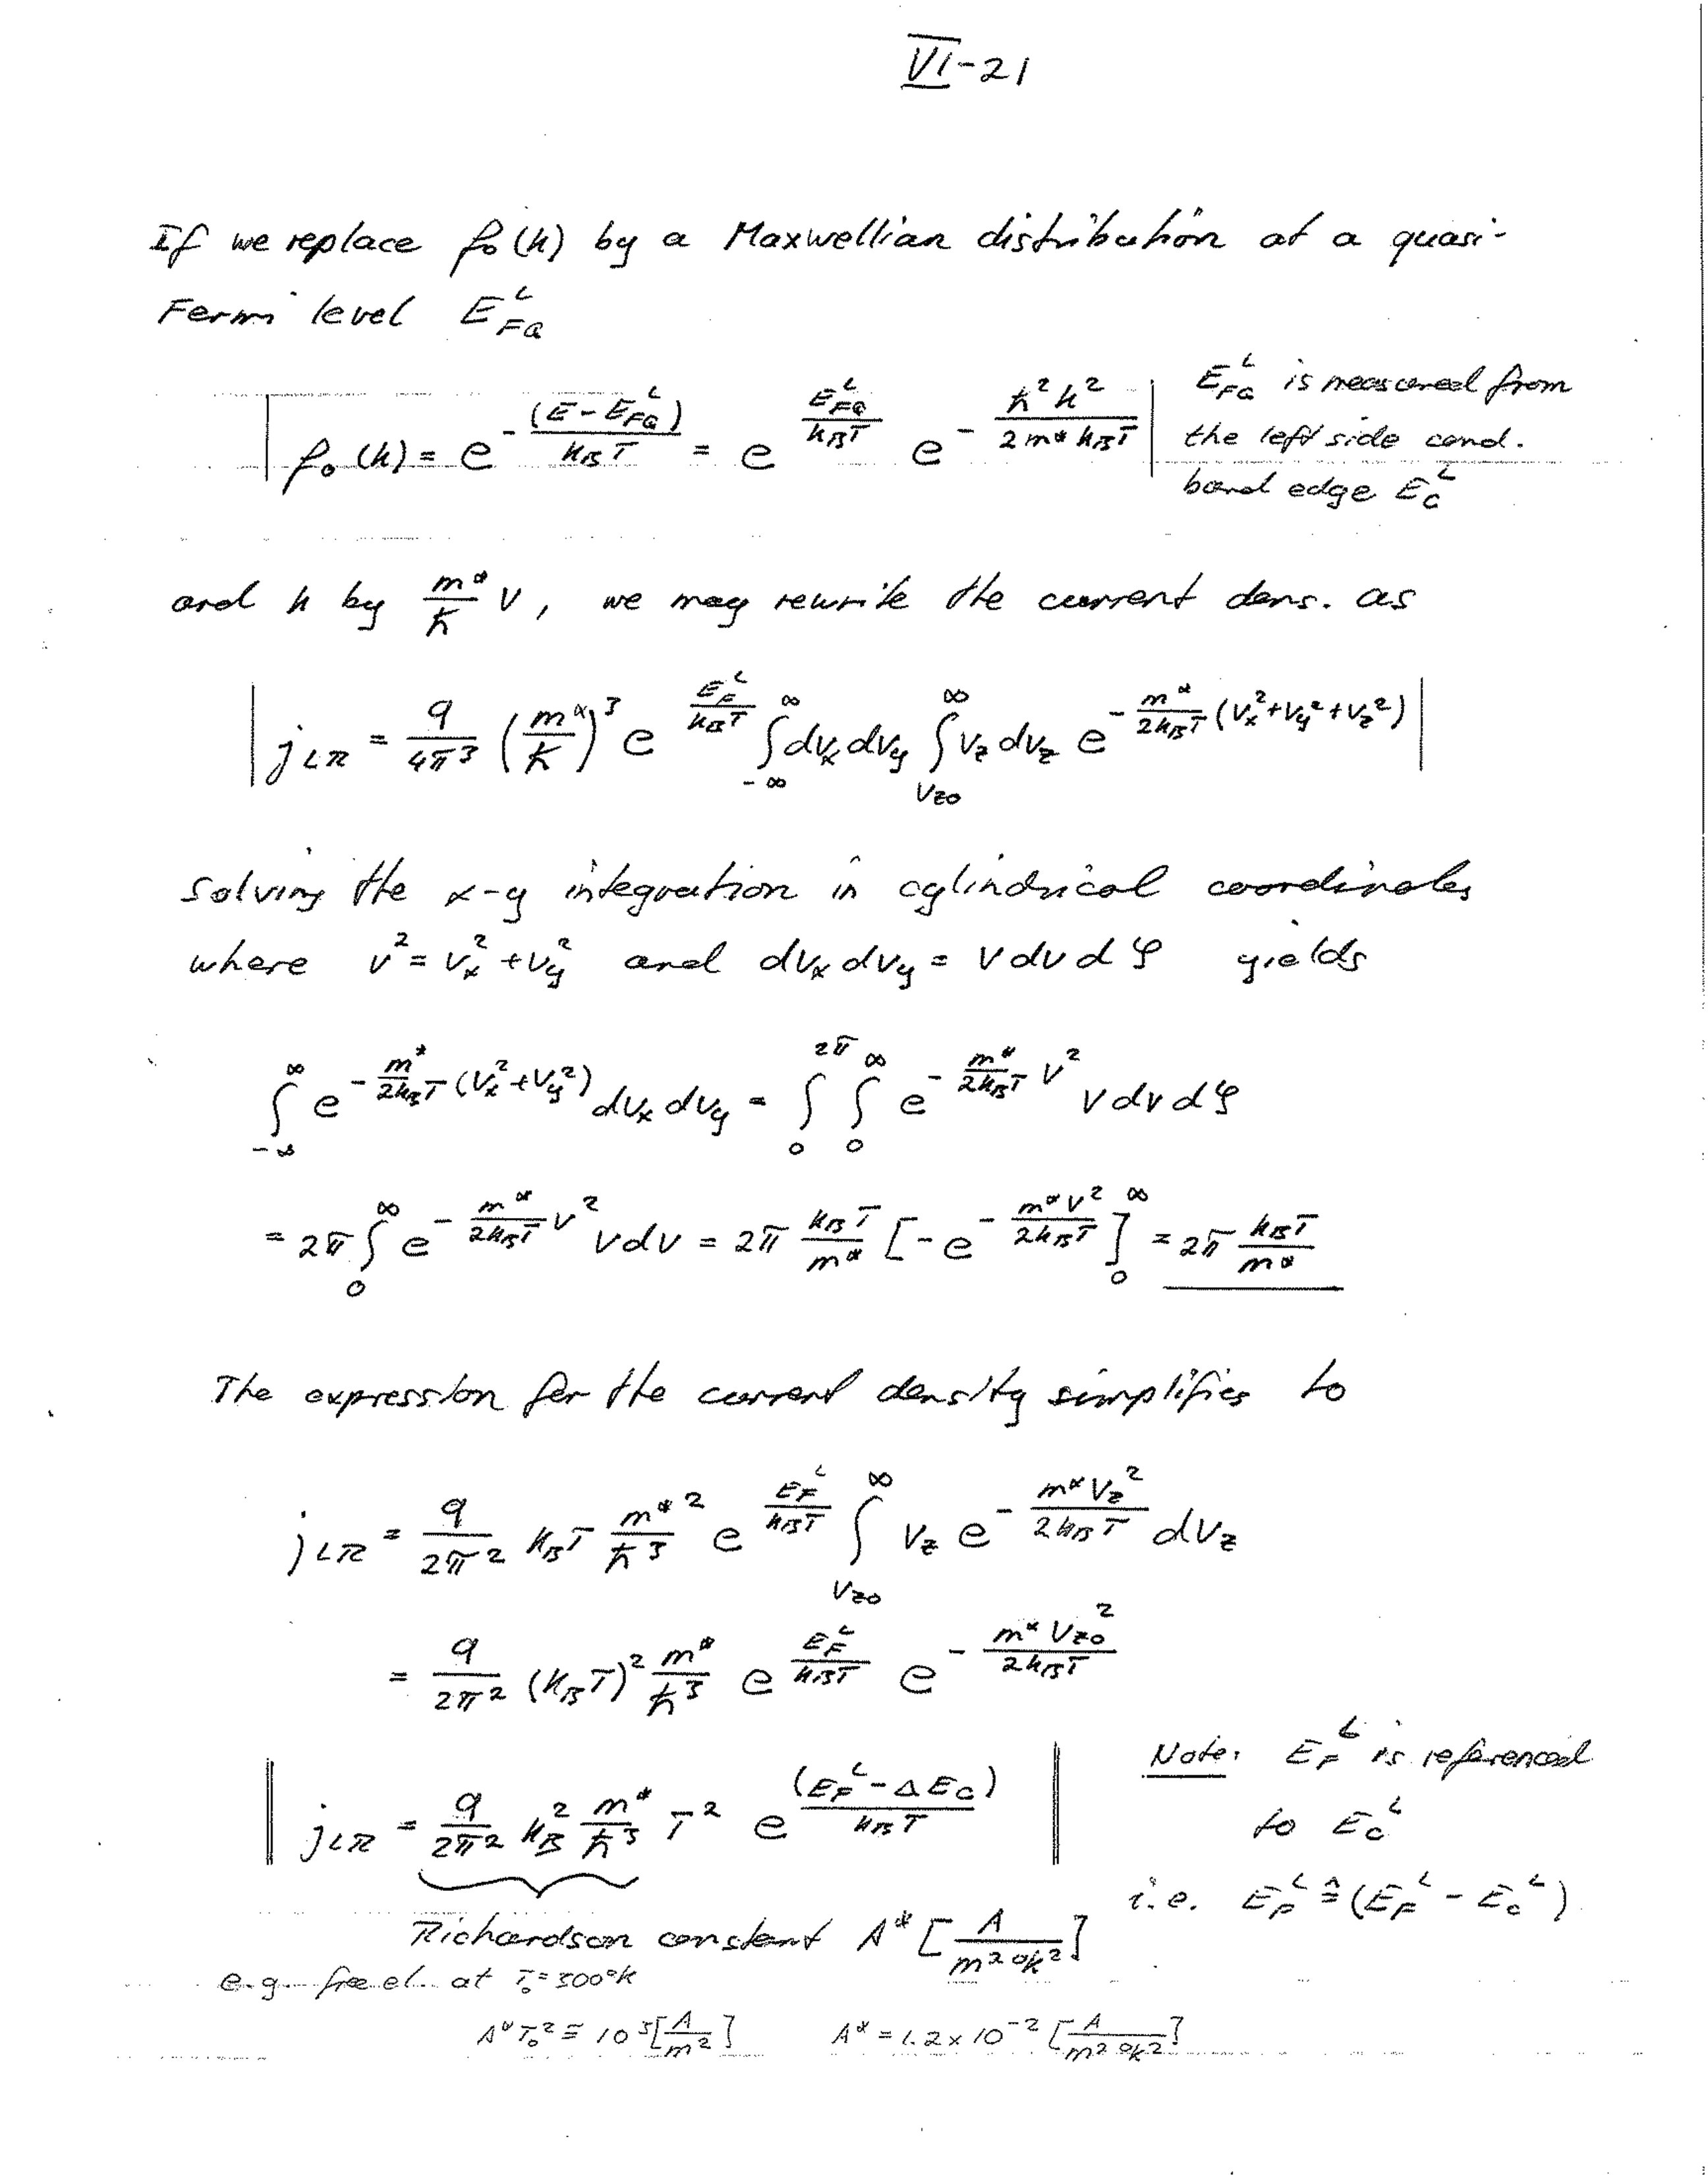 VI-21
If we replace f₀(k) by a Maxwellian distribution at a quasi-
Fermi level E_FQ^L
f₀(k) = e^{-(E-E_FQ^L)/(k_B T)} = e^{E_FQ^L/(k_B T)} e^{-ħ²k²/(2m* k_B T)}
E_FQ^L is measured from
the left side cond.
band edge E_C^L
and k by m*/ħ v, we may rewrite the current dens. as
j_LR = q/(4π³) (m*/ħ)³ e^{E_F^L/(k_B T)} ∫_{-∞}^{∞} dv_x dv_y ∫_{v_z0}^{∞} v_z dv_z e^{-m*/(2k_B T) (v_x²+v_y²+v_z²)}
solving the x-y integration in cylindrical coordinates
where v² = v_x² + v_y² and dv_x dv_y = v dv dφ yields
∫_{-∞}^{∞} e^{-m*/(2k_B T) (v_x²+v_y²)} dv_x dv_y = ∫_0^{2π} ∫_0^{∞} e^{-m*/(2k_B T) v²} v dv dφ
= 2π ∫_0^{∞} e^{-m*/(2k_B T) v²} v dv = 2π k_B T/m* [-e^{-m* v²/(2k_B T)}]_0^{∞} = 2π k_B T/m*
The expression for the current density simplifies to
j_LR = q/(2π²) k_B T m*²/ħ³ e^{E_F^L/(k_B T)} ∫_{v_z0}^{∞} v_z e^{-m* v_z²/(2k_B T)} dv_z
= q/(2π²) (k_B T)² m*/ħ³ e^{E_F^L/(k_B T)} e^{-m* v_z0²/(2k_B T)}
j_LR = q/(2π²) k_B² m*/ħ³ T² e^{(E_F^L - ΔE_C)/(k_B T)}
Note: E_F^L is referenced
to E_C^L
i.e. E_F^L ≙ (E_F^L - E_C^L)
Richardson constant A* [A/(m² °K²)]
e.g. free el. at T₀ = 300°K
A* T₀² ≅ 10⁵ [A/m²] A* = 1.2 x 10⁻² [A/(m² °K²)]